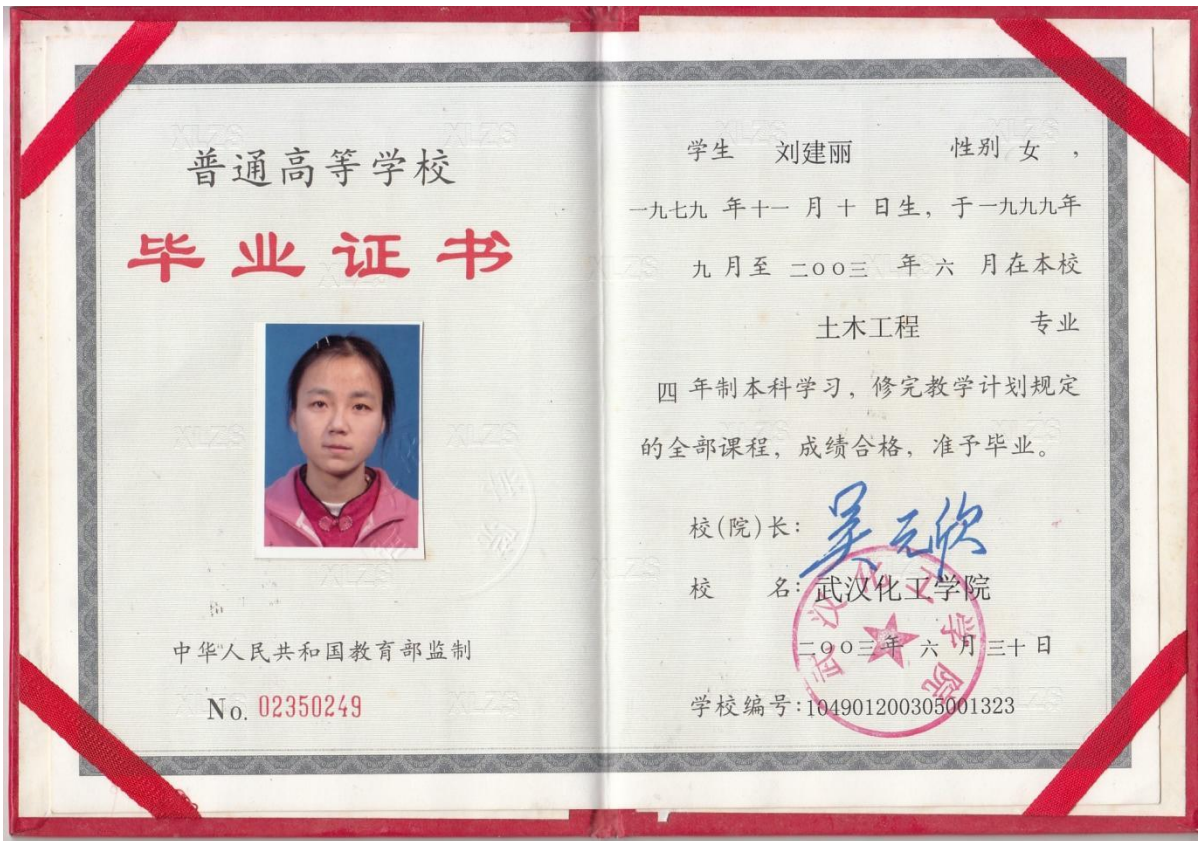 普通高等学校
毕业证书
中华人民共和国教育部监制
No. 02350249
学生 刘建丽 性别 女，
一九七九 年十一 月 十 日生，于一九九九年
九 月至 二○○三 年 六 月在本校
土木工程 专业
四 年制本科学习，修完教学计划规定
的全部课程，成绩合格，准予毕业。
校(院)长：吴元欣
校 名：武汉化工学院
武汉化工学院
二○○三年 六 月三十日
学校编号：104901200305001323
XLZS